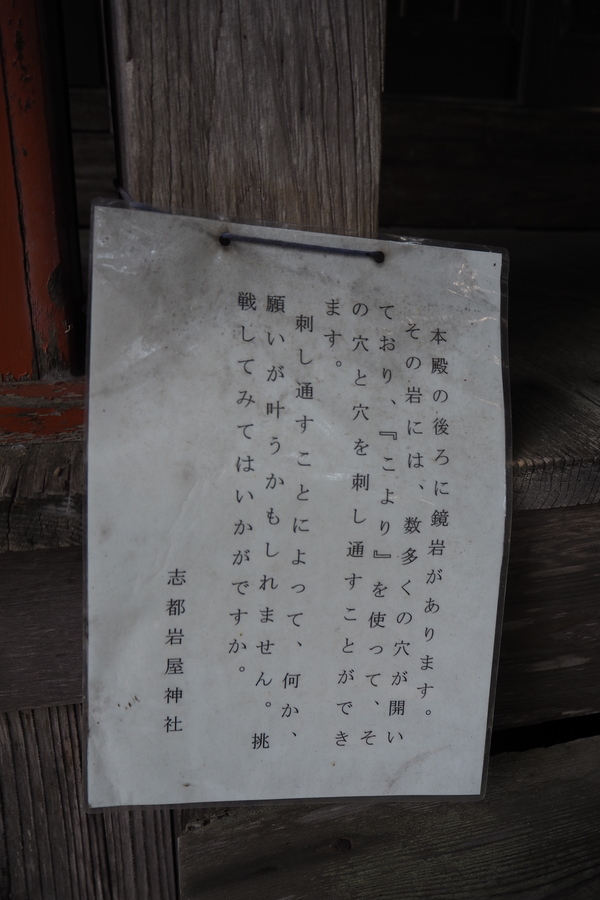 本殿の後ろに鏡岩があります。
その岩には、数多くの穴が開い
ており、『こより』を使って、そ
の穴と穴を刺し通すことができ
ます。
刺し通すことによって、何か、
願いが叶うかもしれません。挑
戦してみてはいかがですか。
志都岩屋神社